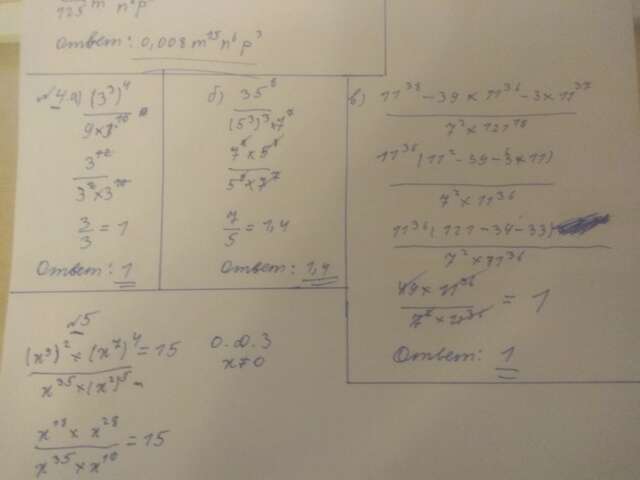 125 m n⁶p
Ответ: 0,008 m¹⁵ n⁶ p³
№4. а) (3³)⁴
9×3¹⁰
3¹²
3²×3¹⁰
3/3 = 1
Ответ: 1
б) 35⁸
(5³)³×7⁷
7⁸×5⁸
5⁹×7⁷
7/5 = 1,4
Ответ: 1,4
в) 11³⁸-39×11³⁶-3×11³⁷
7²×121¹⁸
11³⁶(11²-39-3×11)
7²×11³⁶
11³⁶(121-39-33)
7²×11³⁶
49×11³⁶
7²×11³⁶
= 1
Ответ: 1
№5
(x⁹)²×(x⁷)⁴ = 15
x³⁵×(x²)⁵
О.О.З.
x≠0
x¹⁸×x²⁸ = 15
x³⁵×x¹⁰